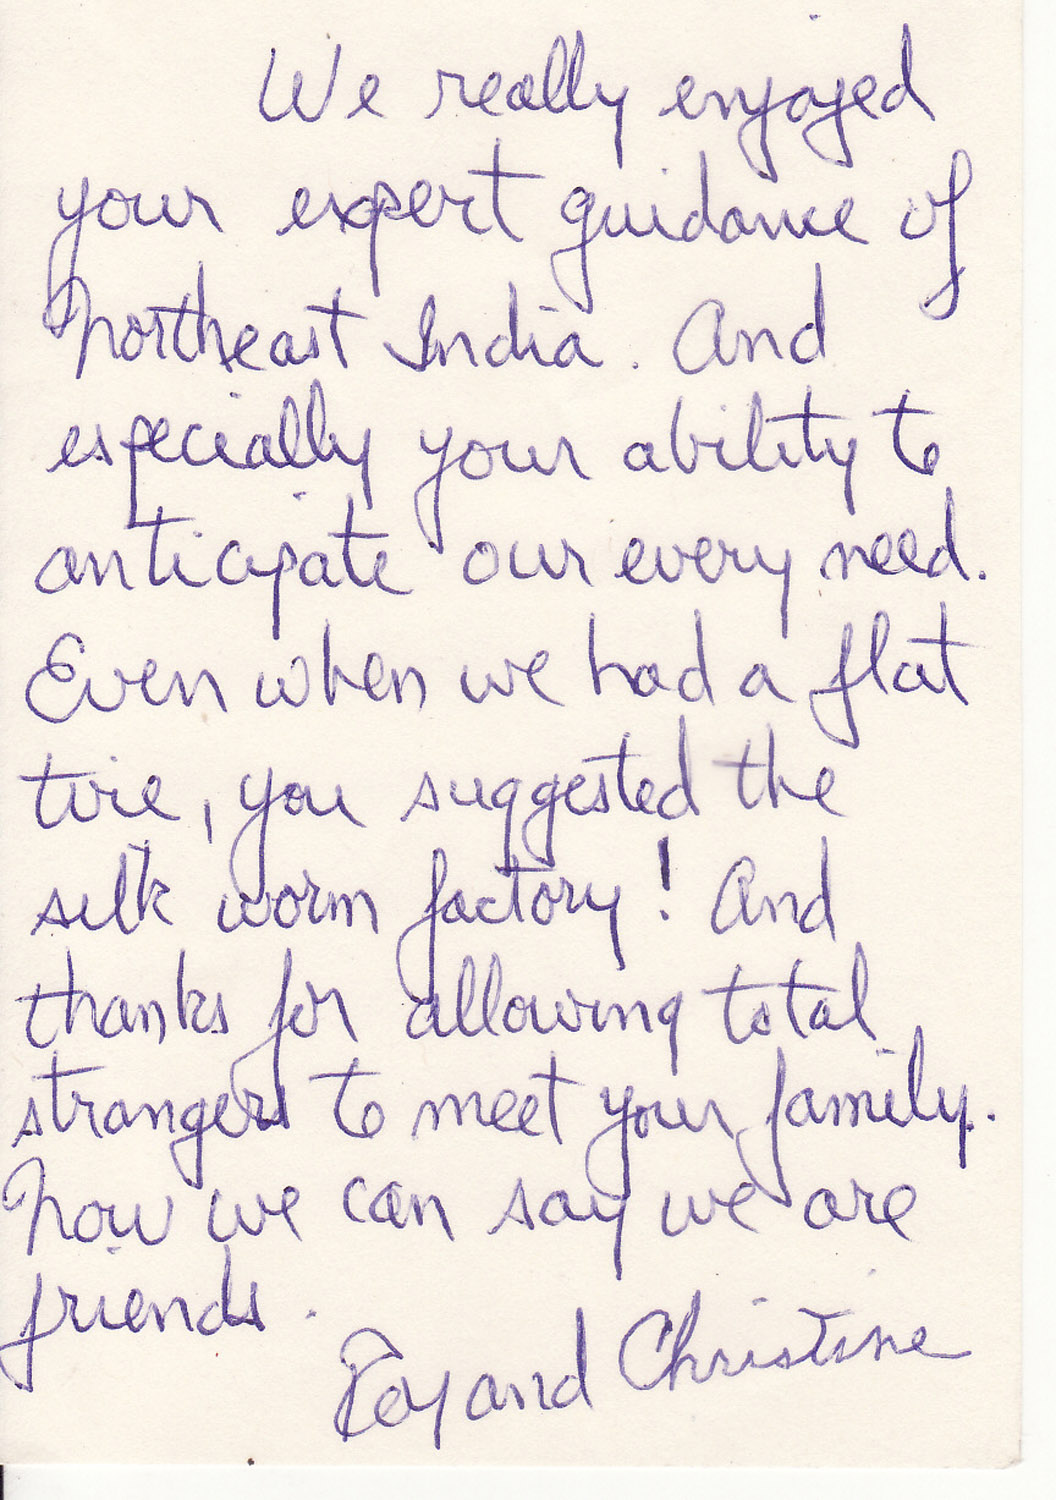 We really enjoyed
your expert guidance of
Northeast India. And
especially your ability to
anticipate our every need.
Even when we had a flat
tire, you suggested the
silk worm factory! And
thanks for allowing total
strangers to meet your family.
Now we can say we are
friends.
Roy and Christine